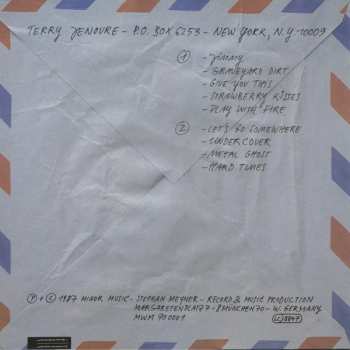 TERRY JENOURE - P.O. BOX 6253 - NEW YORK, N.Y. 10009
1 - JIMMY
- GRAVEYARD DIRT
- GIVE YOU THIS
- STRAWBERRY KISSES
- PLAY WITH FIRE
2 - LET'S GO SOMEWHERE
- UNDERCOVER
- METAL GHOST
- HARD TIMES
P + C 1987 MINOR MUSIC - STEPHAN MEYNER - RECORD & MUSIC PRODUCTION
8 MÜNCHEN 70 - W. GERMANY
MWM